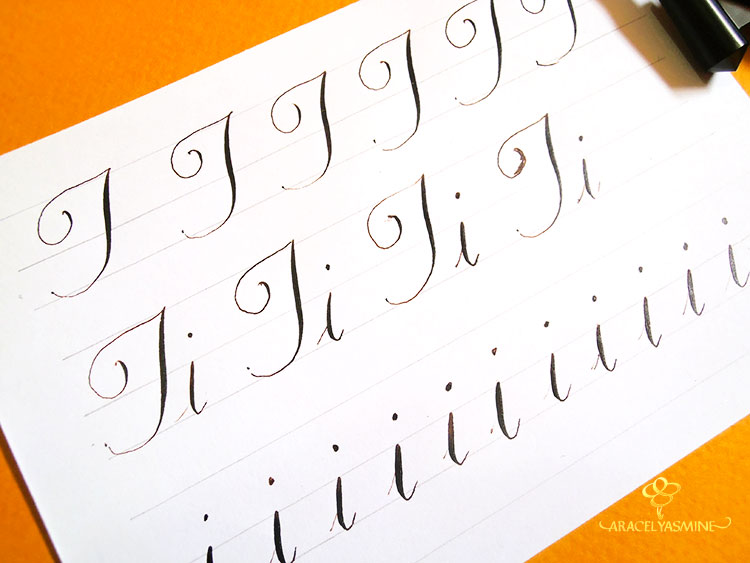 I I I I I I
Ii Ii Ii Ii
i i i i i i i i i i i
ARACELYASMINE